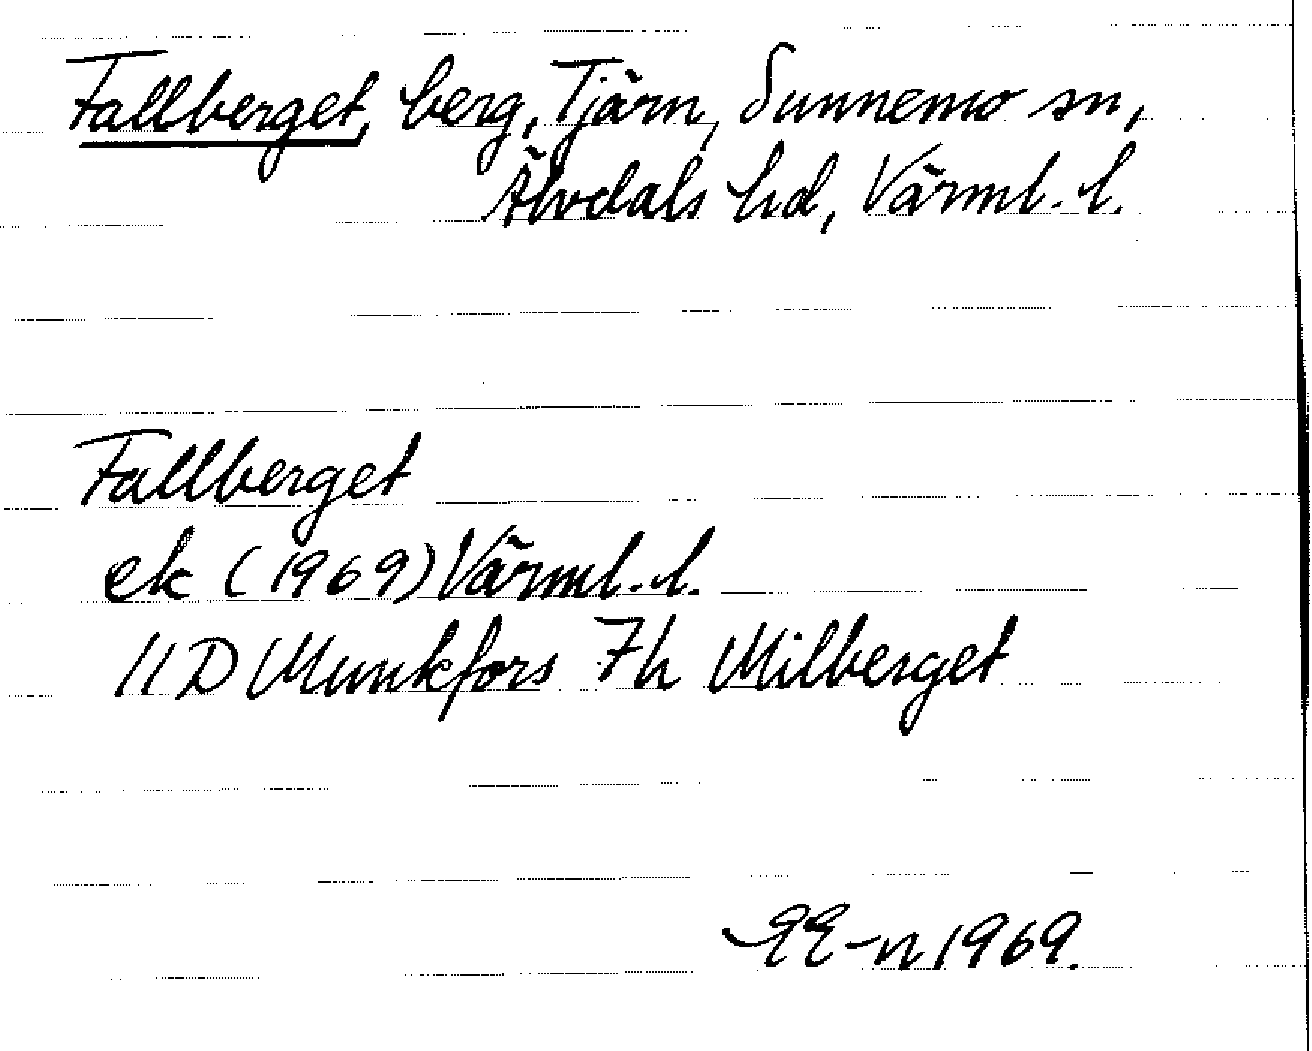 Fallberget, berg, Tjärn, Sunnemo sn,
Älvdals hd, Värml. l.
Fallberget
ek (1969) Värml. l.
11D Munkfors 7h Milberget
1969.